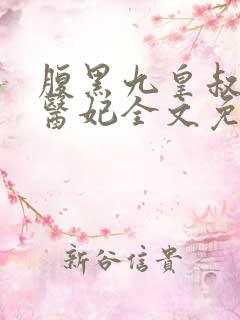 腹黑九皇叔
醫妃全文免
新谷信貴